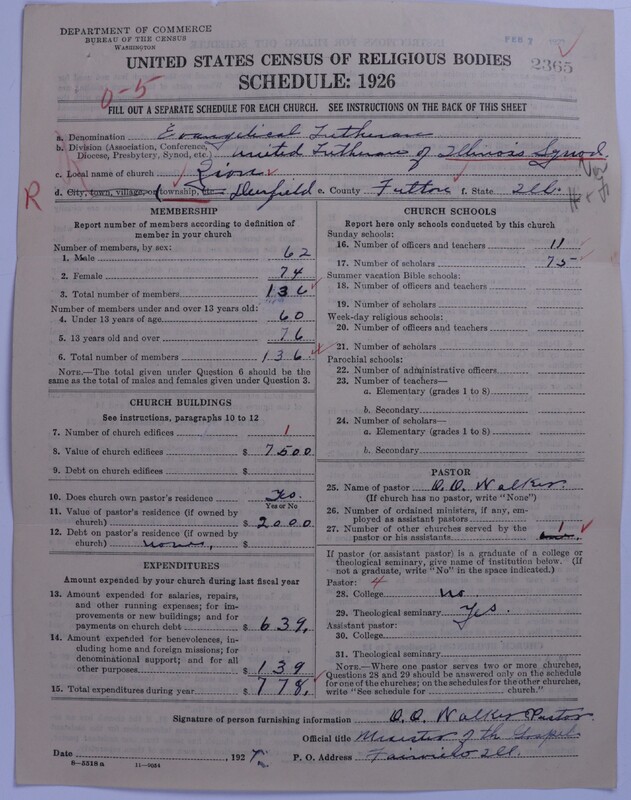 DEPARTMENT OF COMMERCE
BUREAU OF THE CENSUS
WASHINGTON
FEB
2365
UNITED STATES CENSUS OF RELIGIOUS BODIES
SCHEDULE: 1926
0-5
FILL OUT A SEPARATE SCHEDULE FOR EACH CHURCH. SEE INSTRUCTIONS ON THE BACK OF THIS SHEET
a. Denomination Evangelical Lutheran
b. Division (Association, Conference, Diocese, Presbytery, Synod, etc.) United Lutheran of Illinois Synod.
c. Local name of church Zion
R
d. City, town, village, or township, etc. e. County f. State Ill.
MEMBERSHIP
Report number of members according to definition of member in your church
Number of members, by sex:
1. Male 62
2. Female 74
3. Total number of members 136
Number of members under and over 13 years old:
4. Under 13 years of age 60
5. 13 years old and over 76
6. Total number of members 136
NOTE.—The total given under Question 6 should be the same as the total of males and females given under Question 3.
CHURCH BUILDINGS
See instructions, paragraphs 10 to 12
7. Number of church edifices 1
8. Value of church edifices $ 7500
9. Debt on church edifices $
10. Does church own pastor's residence Yes
Yes or No
11. Value of pastor's residence (if owned by church) $ 2000
12. Debt on pastor's residence (if owned by church) none, $
EXPENDITURES
Amount expended by your church during last fiscal year
13. Amount expended for salaries, repairs, and other running expenses; for improvements or new buildings; and for payments on church debt $ 639,
14. Amount expended for benevolences, including home and foreign missions; for denominational support; and for all other purposes $ 139
15. Total expenditures during year $ 778,
CHURCH SCHOOLS
Report here only schools conducted by this church
Sunday schools:
16. Number of officers and teachers 11
17. Number of scholars 75
Summer vacation Bible schools:
18. Number of officers and teachers
19. Number of scholars
Week-day religious schools:
20. Number of officers and teachers
21. Number of scholars
Parochial schools:
22. Number of administrative officers
23. Number of teachers—
a. Elementary (grades 1 to 8)
b. Secondary
24. Number of scholars—
a. Elementary (grades 1 to 8)
b. Secondary
PASTOR
25. Name of pastor O. O. Walker.
(If church has no pastor, write "None")
26. Number of ordained ministers, if any, employed as assistant pastors
27. Number of other churches served by the pastor or his assistants 1
If pastor (or assistant pastor) is a graduate of a college or theological seminary, give name of institution below. (If not a graduate, write "No" in the space indicated.)
Pastor: 4
28. College no
29. Theological seminary Yes.
Assistant pastor:
30. College
31. Theological seminary
NOTE.—Where one pastor serves two or more churches, Questions 28 and 29 should be answered only on the schedule for one of the churches; on the schedules for the other churches, write "See schedule for church."
Signature of person furnishing information O. O. Walker Pastor.
Official title Minister of the Gospel
Date , 192 P. O. Address Ill.
8—5518a 11—9054